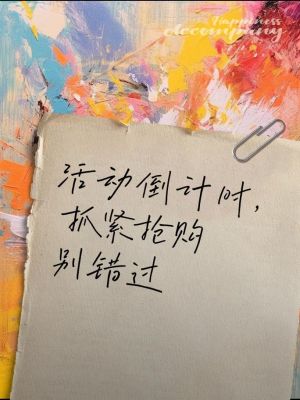 Happiness
accompany
活动倒计时,
抓紧抢购
别错过